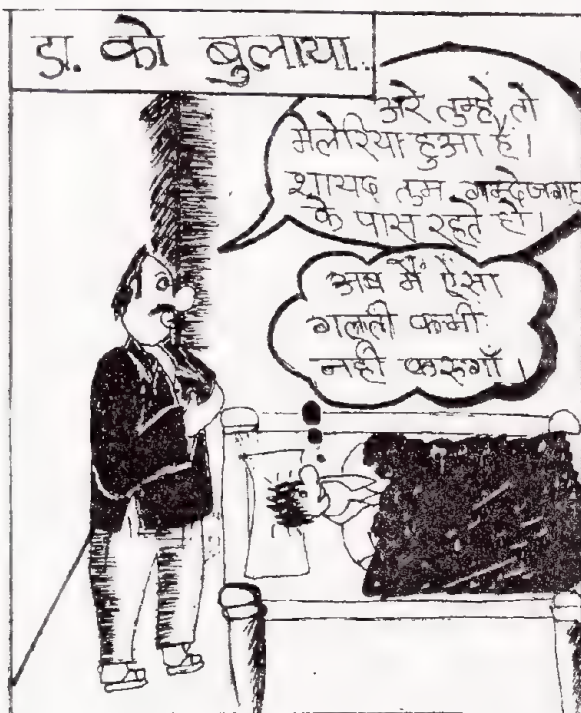 डा. को बुलाया..
अरे तुम्हे, तो
मेलेरिया हुआ है।
शायद तुम गन्देजगह
के पास रहते हो।
अब मैं ऐसा
गलती कभी
नही करुगाँ।